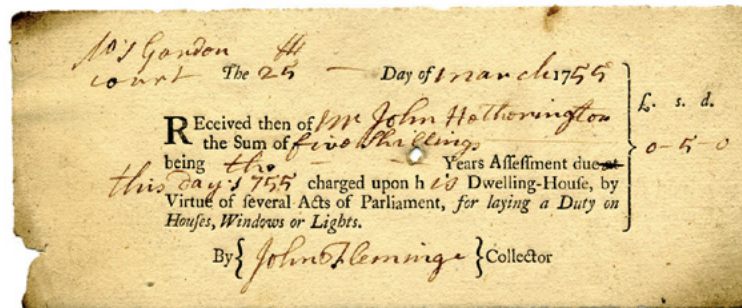 No 5 Gordon
court The 25th — Day of march 1755
£. s. d.
REceived then of Mr John Hetherington
the Sum of five Shillings
0-5-0
being the — Years Assessment due at
this day 1755 charged upon his Dwelling-House, by
Virtue of several Acts of Parliament, for laying a Duty on
Houses, Windows or Lights.
By { John Fleminge } Collector